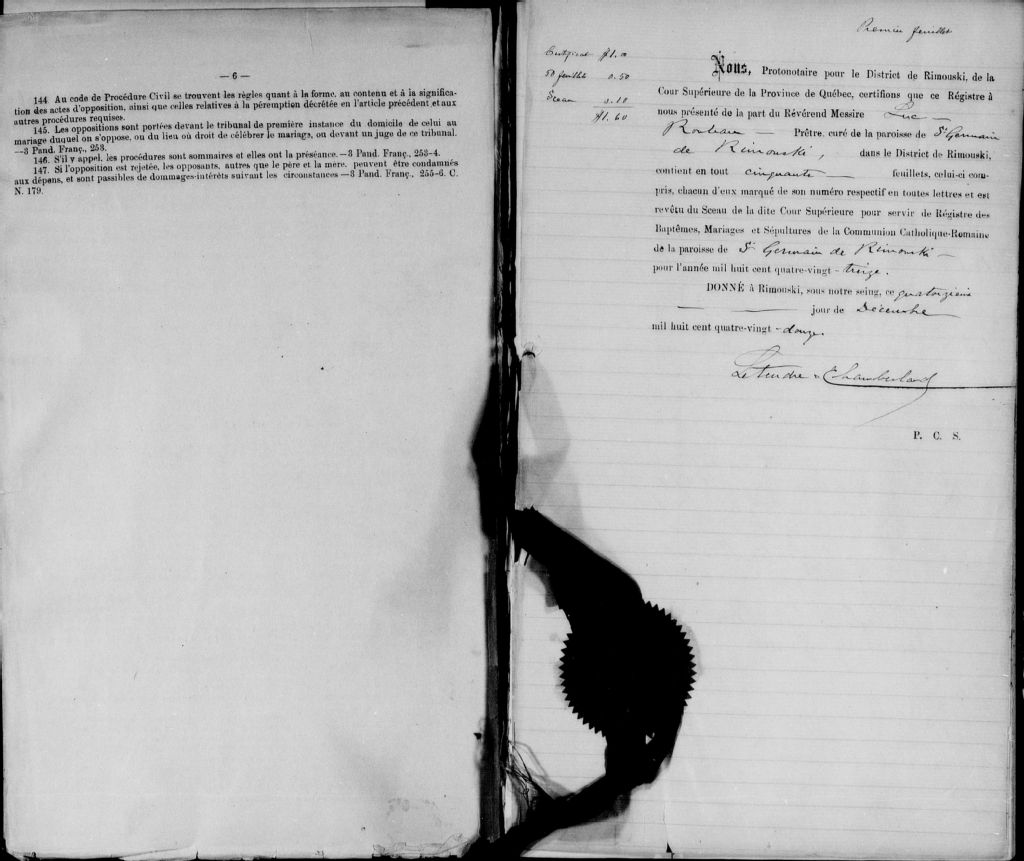 — 6 —
144. Au code de Procédure Civil se trouvent les règles quant à la forme, au contenu et à la significa-
tion des actes d'opposition, ainsi que celles relatives à la péremption décrétée en l'article précédent et aux
autres procédures requises.
145. Les oppositions sont portées devant le tribunal de première instance du domicile de celui au
mariage duquel on s'oppose, ou du lieu où droit de célébrer le mariage, ou devant un juge de ce tribunal.
—3 Pand. Franç., 253.
146. S'il y appel, les procédures sont sommaires et elles ont la préséance.—3 Pand. Franç., 253-4.
147. Si l'opposition est rejetée, les opposants, autres que le père et la mère, peuvent être condamnés
aux dépens, et sont passibles de dommages-intérêts suivant les circonstances—3 Pand. Franç., 255-6. C.
N. 179.
Premier feuillet
Certificat $1.0
50 feuillets 0.50
Sceau 0.10
$1.60
Nous, Protonotaire pour le District de Rimouski, de la
Cour Supérieure de la Province de Québec, certifions que ce Régistre à
nous présenté de la part du Révérend Messire Luc —
Rouleau — Prêtre, curé de la paroisse de St Germain
de Rimouski, dans le District de Rimouski,
contient en tout cinquante — feuillets, celui-ci com-
pris, chacun d'eux marqué de son numéro respectif en toutes lettres et est
revêtu du Sceau de la dite Cour Supérieure pour servir de Régistre des
Baptêmes, Mariages et Sépultures de la Communion Catholique-Romaine
de la paroisse de St Germain de Rimouski —
pour l'année mil huit cent quatre-vingt-treize.
DONNÉ à Rimouski, sous notre seing, ce quatorzième
— — jour de Décembre —
mil huit cent quatre-vingt-douze.
Letendre & Chamberland
P. C. S.